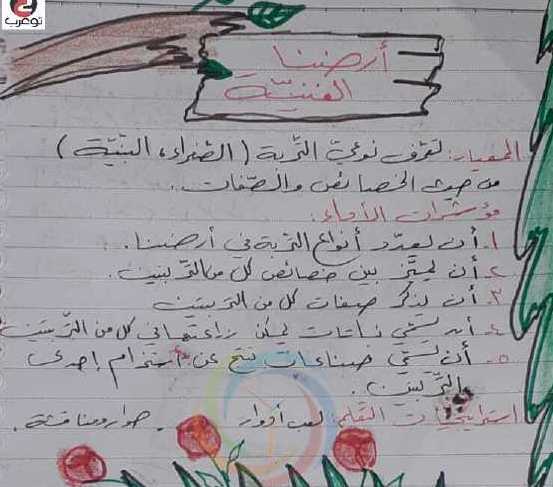 توعرب
أرضنا
الغنيّة
المعيار: تعرّف نوعيّ التّربة (الصّفراء، البنيّة)
من حيث الخصائص والصّفات.
مؤشرات الأداء:
١. أن يعدّد أنواع التربة في أرضنا.
٢. أن يميّز بين خصائص كل من التّربتين.
٣. أن يذكر صفات كل من التربتين
٤. أن يسمّي نباتات يمكن زراعتها في كل من التّربتين
٥. أن يسمّي صناعات تنتج عن استخدام إحدى
التّربتين.
استراتيجيات التعلم: لعب أدوار. حوار ومناقشة.